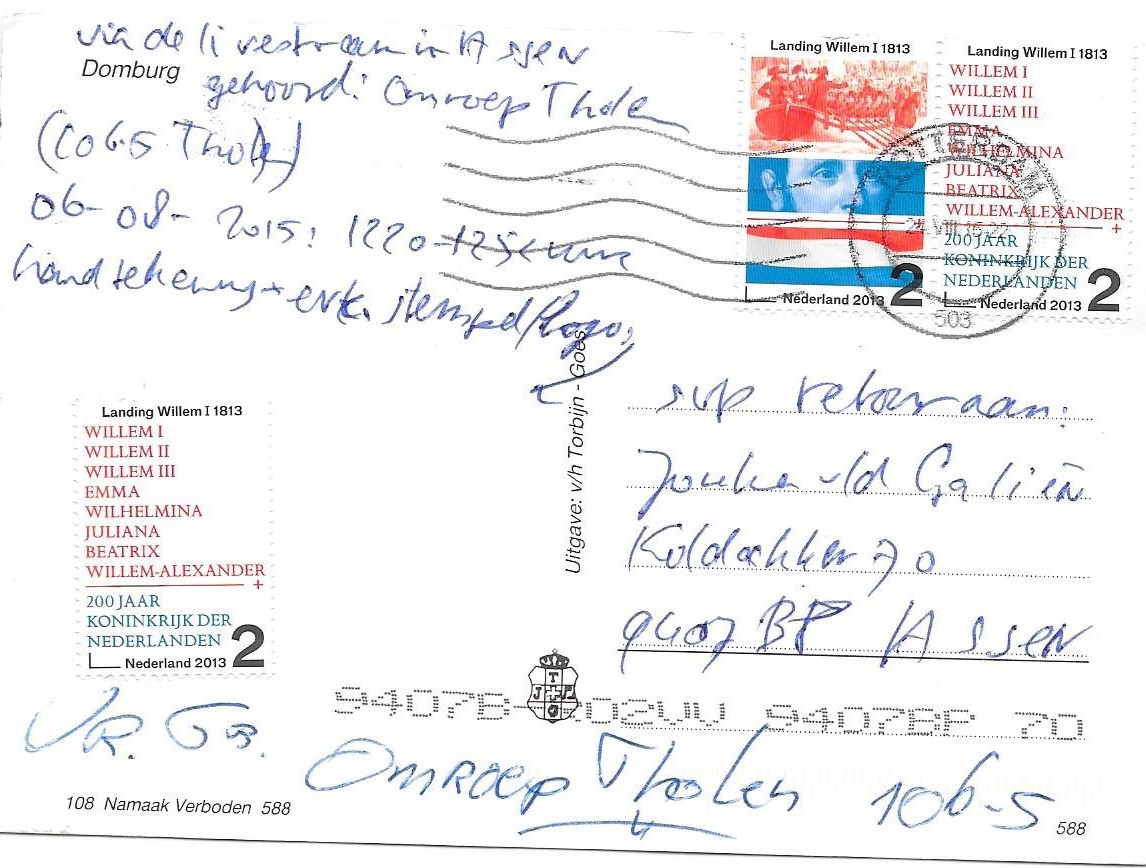 via de livestream in Assen
Domburg
gehoord: Omroep Tholen
(106.5 Tholen)
06-08-2015: 1220-1250 uur
handtekening + evt. stempel/logo,
Landing Willem I 1813
Nederland 2013 2
Landing Willem I 1813
WILLEM I
WILLEM II
WILLEM III
EMMA
WILHELMINA
JULIANA
BEATRIX
WILLEM-ALEXANDER
+
200 JAAR
KONINKRIJK DER
NEDERLANDEN
Nederland 2013 2
503
Landing Willem I 1813
WILLEM I
WILLEM II
WILLEM III
EMMA
WILHELMINA
JULIANA
BEATRIX
WILLEM-ALEXANDER
+
200 JAAR
KONINKRIJK DER
NEDERLANDEN
Nederland 2013 2
Uitgave: v/h Torbijn - Goes
svp retour aan:
v/d Galiën
Koldakker 70
9407 BP Assen
9407BP 70
VR. Gr.
Omroep Tholen 106-5
108 Namaak Verboden 588
588